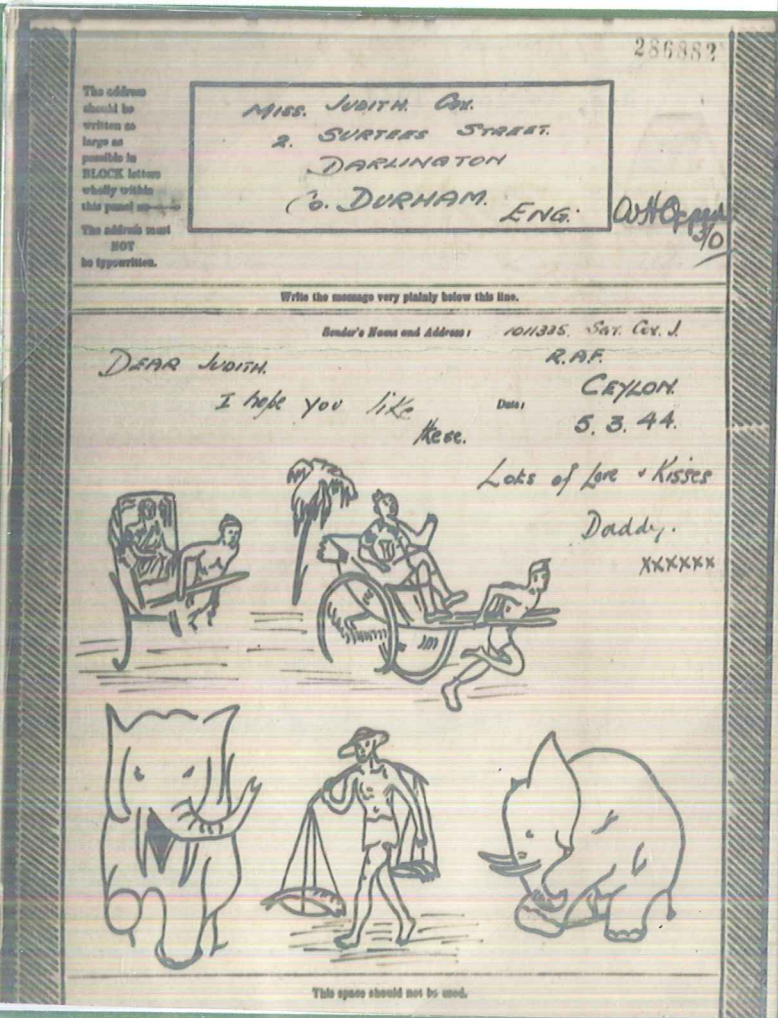 286882
The address
should be
written as
large as
possible in
BLOCK letters
wholly within
this panel
The address must
NOT
be typewritten.
MISS. JUDITH. COX.
2. SURTEES STREET.
DARLINGTON
Co. DURHAM.
ENG.
Write the message very plainly below this line.
Sender's Name and Address: 1011335. SGT. COX. J.
R.A.F.
CEYLON.
Date: 5. 3. 44.
DEAR JUDITH.
I hope you like
these.
Lots of Love & Kisses
Daddy.
xxxxxx
This space should not be used.